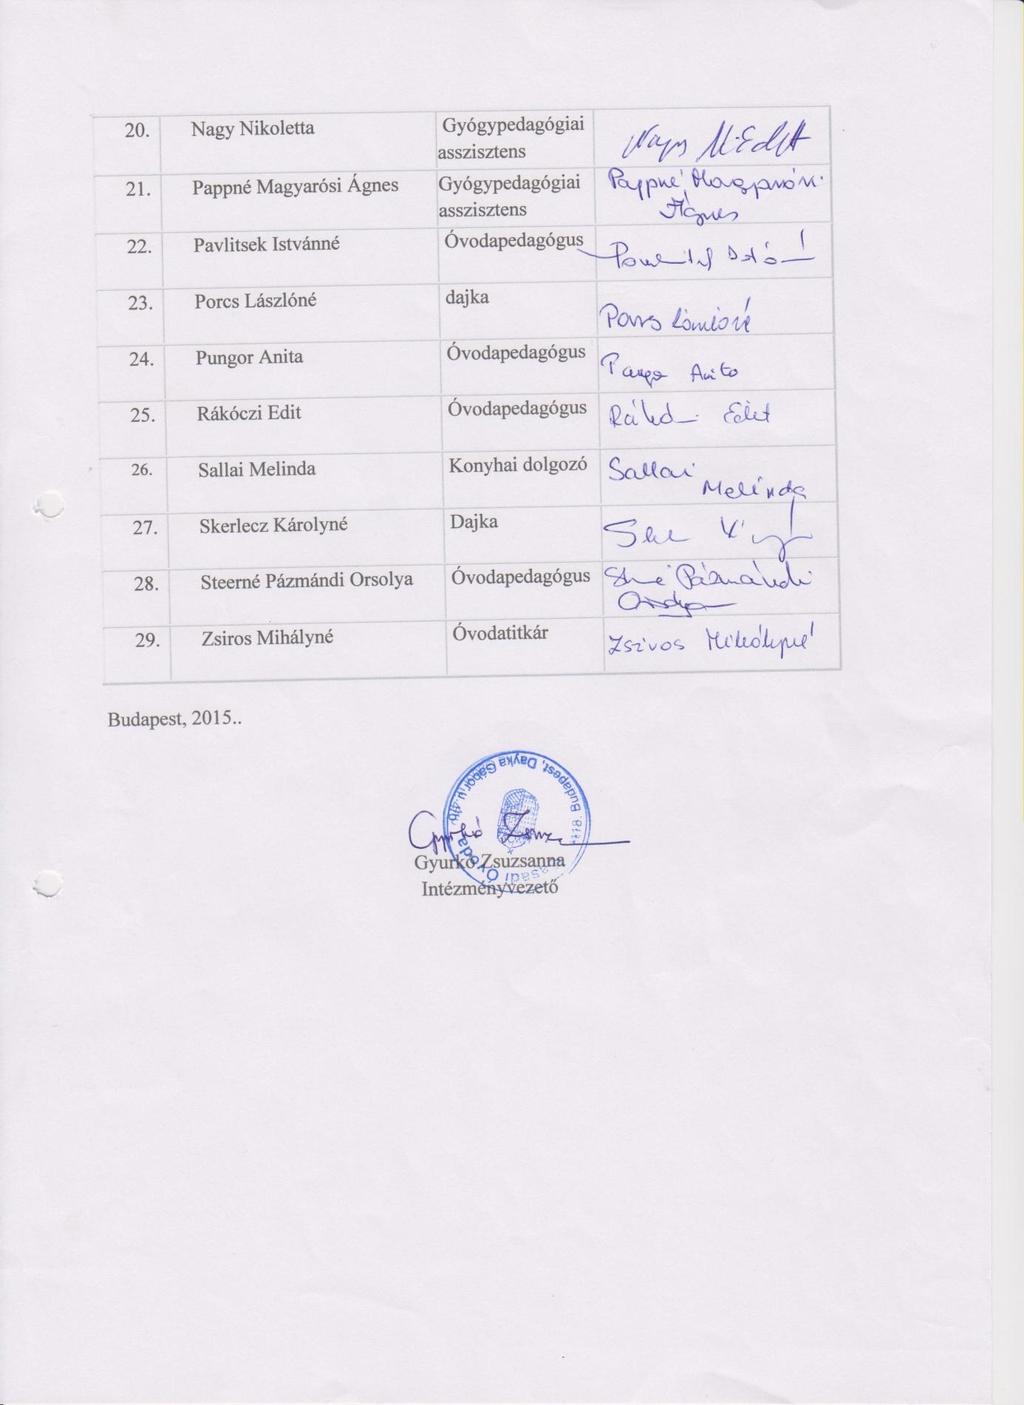 20. Nagy Nikoletta Gyógypedagógiai
asszisztens
Nagy
21. Pappné Magyarósi Ágnes Gyógypedagógiai
asszisztens
Pappné Magyarósi
Ágnes
22. Pavlitsek Istvánné Óvodapedagógus
23. Porcs Lászlóné dajka
Porcs Lászlóné
24. Pungor Anita Óvodapedagógus
Anita
25. Rákóczi Edit Óvodapedagógus
Edit
26. Sallai Melinda Konyhai dolgozó
Sallai
Melinda
27. Skerlecz Károlyné Dajka
28. Steerné Pázmándi Orsolya Óvodapedagógus
Pázmándi
Orsolya
29. Zsiros Mihályné Óvodatitkár
Zsiros Mihályné
Budapest, 2015..
Budapest, Dayka Gábor u.
Gyurkó Zsuzsanna
Gyurkó Zsuzsanna
Intézményvezető